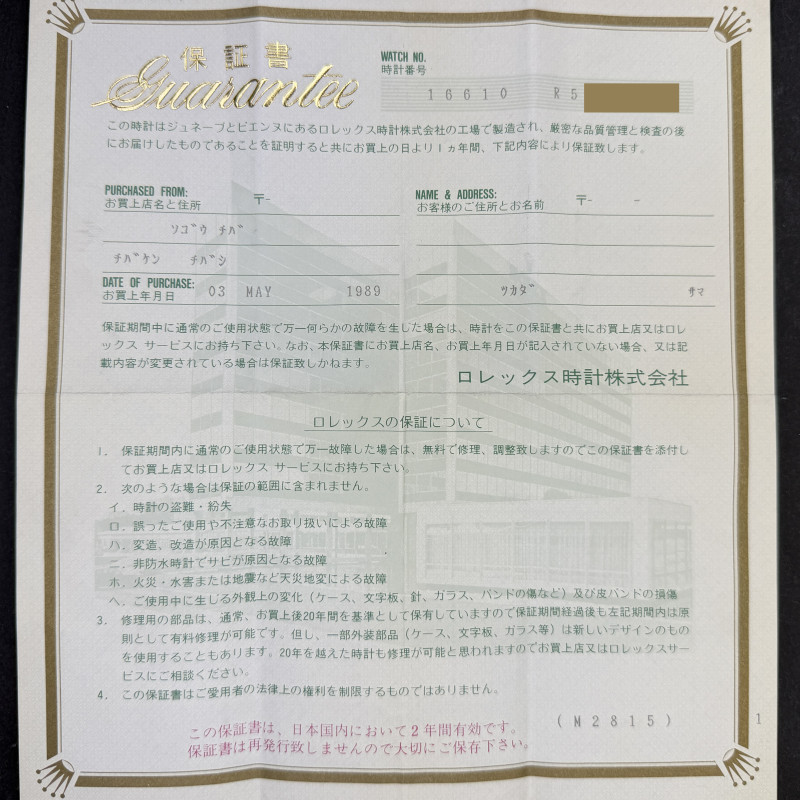 保証書
Guarantee
WATCH NO.
時計番号
16610 R5
この時計はジュネーブとビエンヌにあるロレックス時計株式会社の工場で製造され、厳密な品質管理と検査の後
にお届けしたものであることを証明すると共にお買上の日より1ヵ年間、下記内容により保証致します。
PURCHASED FROM:
お買上店名と住所 〒-
ソゴウ チバ
チバケン チバシ
NAME & ADDRESS:
お客様のご住所とお名前 〒- -
DATE OF PURCHASE:
お買上年月日 03 MAY 1989
ツカダ サマ
保証期間中に通常のご使用状態で万一何らかの故障を生じた場合は、時計をこの保証書と共にお買上店又はロレ
ックス サービスにお持ち下さい。なお、本保証書にお買上店名、お買上年月日が記入されていない場合、又は記
載内容が変更されている場合は保証致しかねます。
ロレックス時計株式会社
ロレックスの保証について
1. 保証期間内に通常のご使用状態で万一故障した場合は、無料で修理、調整致しますのでこの保証書を添付し
てお買上店又はロレックス サービスにお持ち下さい。
2. 次のような場合は保証の範囲に含まれません。
イ. 時計の盗難・紛失
ロ. 誤ったご使用や不注意なお取り扱いによる故障
ハ. 変造、改造が原因となる故障
ニ. 非防水時計でサビが原因となる故障
ホ. 火災・水害または地震など天災地変による故障
ヘ. ご使用中に生じる外観上の変化（ケース、文字板、針、ガラス、バンドの傷など）及び皮バンドの損傷
3. 修理用の部品は、通常、お買上後20年間を基準として保有していますので保証期間経過後も左記期間内は原
則として有料修理が可能です。但し、一部外装部品（ケース、文字板、ガラス等）は新しいデザインのもの
を使用することもあります。20年を越えた時計も修理が可能と思われますのでお買上店又はロレックスサー
ビスにご相談ください。
4. この保証書はご愛用者の法律上の権利を制限するものではありません。
この保証書は、日本国内において2年間有効です。
保証書は再発行致しませんので大切にご保存下さい。
(M2815)
1